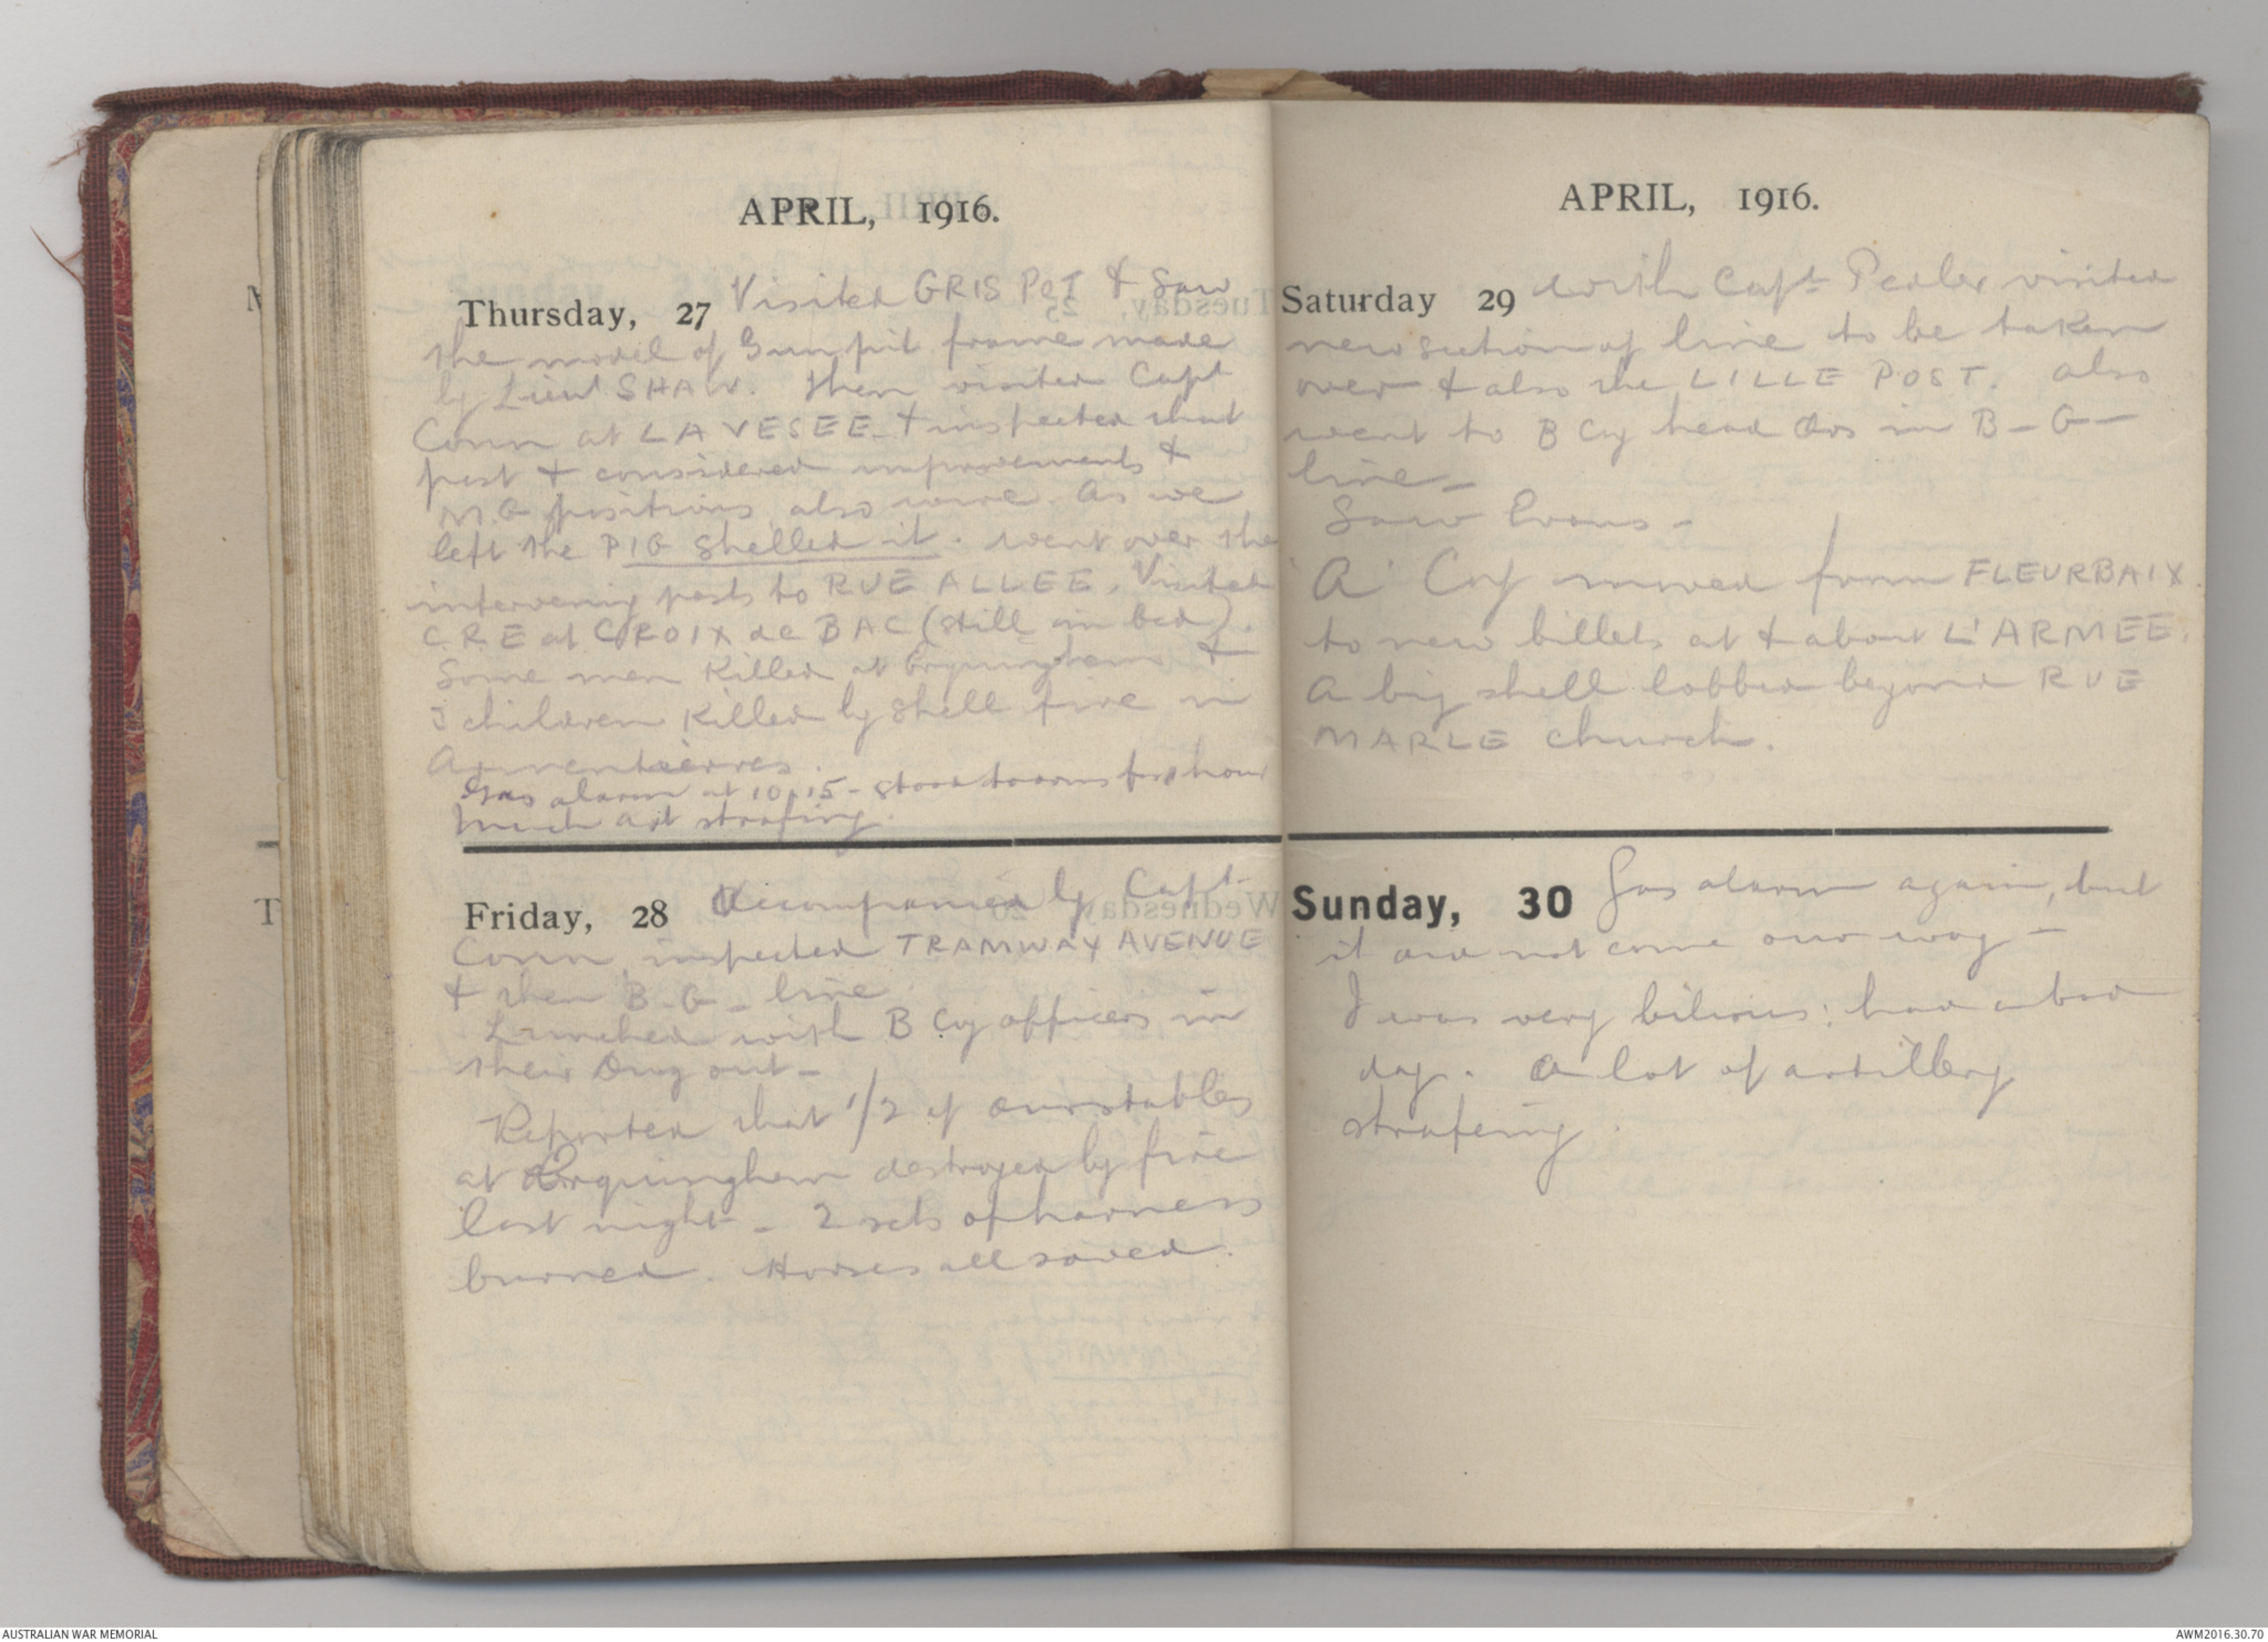 APRIL, 1916.
Thursday, 27 Visited GRIS POT & saw
the model of Gun pit frame made
by Lieut SHAW. Then visited Capt
Conn at LA VESEE & inspected that
post & considered improvements &
M.G positions, also wire. As we
left the PIG shelled it. went over the
intervening posts to RUE ALLEE. Visited
C.R.E at CROIX de BAC (still in bed).
Some men killed at Erquinghem &
children killed by shell fire in
Armentieres.
Gas alarm at 10.15 - stood to arms for hour
Much art strafing.
Friday, 28 Accompanied by Capt
Conn, inspected TRAMWAY AVENUE
& then B-G- line.
Lunched with B Coy officers in
their Dug out-
Reported that 1/2 of our stables
at Erquinghem destroyed by fire
last night - 2 sets of harness
burned. Horses all saved.
APRIL, 1916.
Saturday 29 with Capt visited
new section of line to be taken
over & also the LILLE POST. also
went to B Coy head Qrs in B-G-
line-
Saw Evans-
'A' Coy moved from FLEURBAIX
to new billets at & about L'ARMEE.
A big shell lobbed beyond RUE
MARLE church.
Sunday, 30 Gas alarm again, but
it did not come our way -
I was very bilious: had a bad
day. A lot of artillery
strafeing.
T
AUSTRALIAN WAR MEMORIAL
AWM2016.30.70